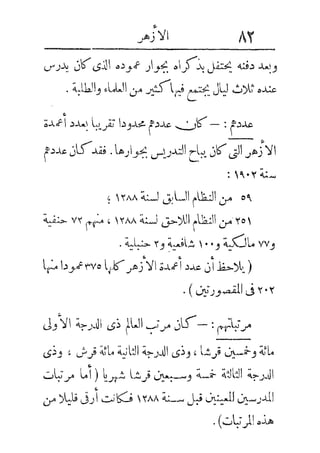 ٨٢ الأزهر
وبعد دفنه يحتفل بذكراه بجوار عموده الذى كان يدرس
عنده ثلاث ليال يجتمع فيها كثير من العلماء والطلبة .
عددهم : — كان عددهم محدودا تقريبا بعدد أعمدة
الأزهر التى كان يباح التدريس بجوارها . فقد كان عددهم
سنة ١٩٠٢ :
٥٩ من النظام السابق لسنة ١٢٨٨ ؛
٢٥١ من النظام اللاحق لسنة ١٢٨٨ ، منهم ٧٢ حنفية
و٧٧ مالكية و١٠٠ شافعية و٢ حنبلية .
( يلاحظ أن عدد أعمدة الأزهر كلها ٣٧٥ عمودا منها
٢٠٢ فى المقصورتين ) .
مرتباتهم : — كان مرتب العالم ذى الدرجة الأولى
مائة وخمسين قرشا ، وذى الدرجة الثانية مائة قرش ، وذى
الدرجة الثالثة خمسة وسبعين قرشا شهريا ( أما مرتبات
المدرسين المعينين قبل سنة ١٢٨٨ فكانت أرقى قليلا من
هذه المرتبات ) .